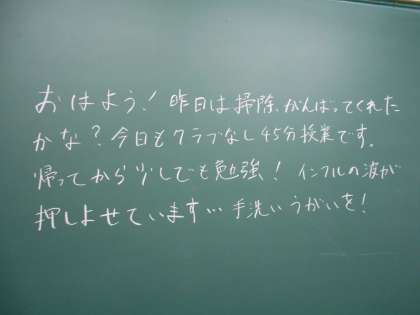 おはよう！昨日は掃除、がんばってくれた
かな？今日もクラブなし45分授業です。
帰ってから少しでも勉強！インフルの波が
押しよせています…手洗いうがいを！